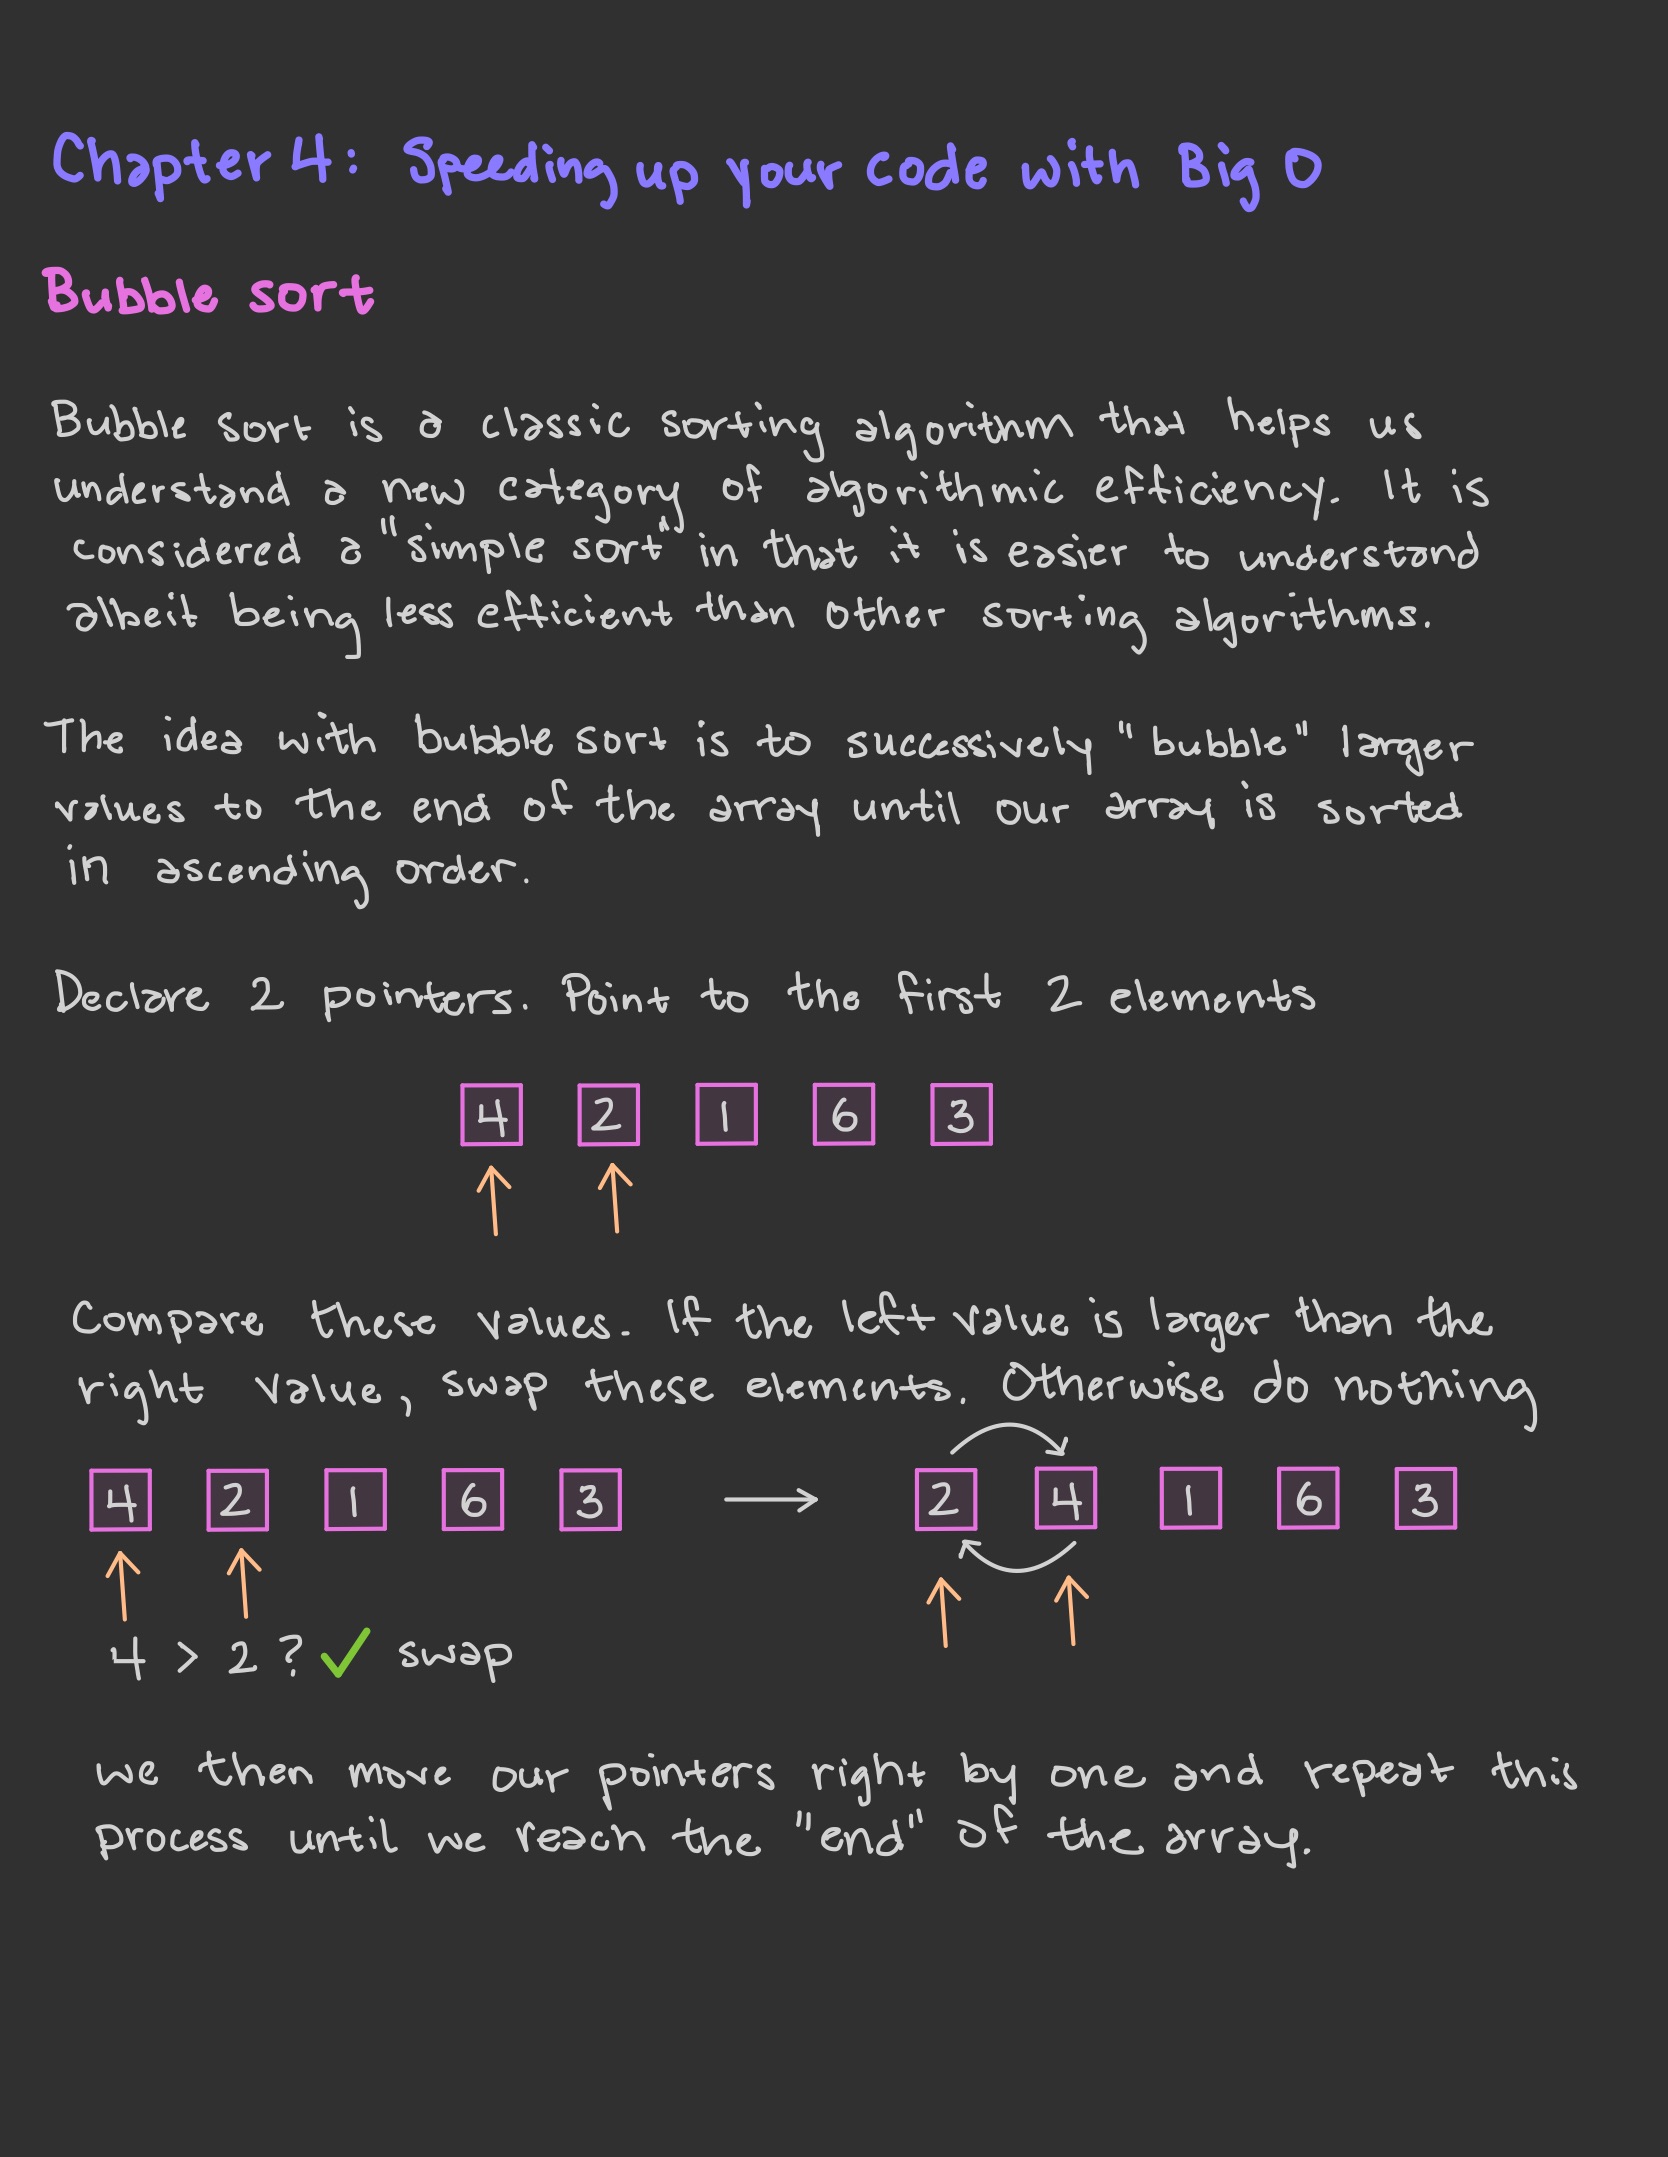 Chapter 4: Speeding up your code with Big O
Bubble sort
Bubble sort is a classic sorting algorithm that helps us
understand a new category of algorithmic efficiency. It is
considered a "simple sort" in that it is easier to understand
albeit being less efficient than other sorting algorithms.
The idea with bubble sort is to successively "bubble" larger
values to the end of the array until our array is sorted
in ascending order.
Declare 2 pointers. Point to the first 2 elements
4 2 1 6 3
Compare these values. If the left value is larger than the
right value, swap these elements. Otherwise do nothing
4 2 1 6 3 → 2 4 1 6 3
4 > 2 ? ✓ swap
we then move our pointers right by one and repeat this
process until we reach the "end" of the array.